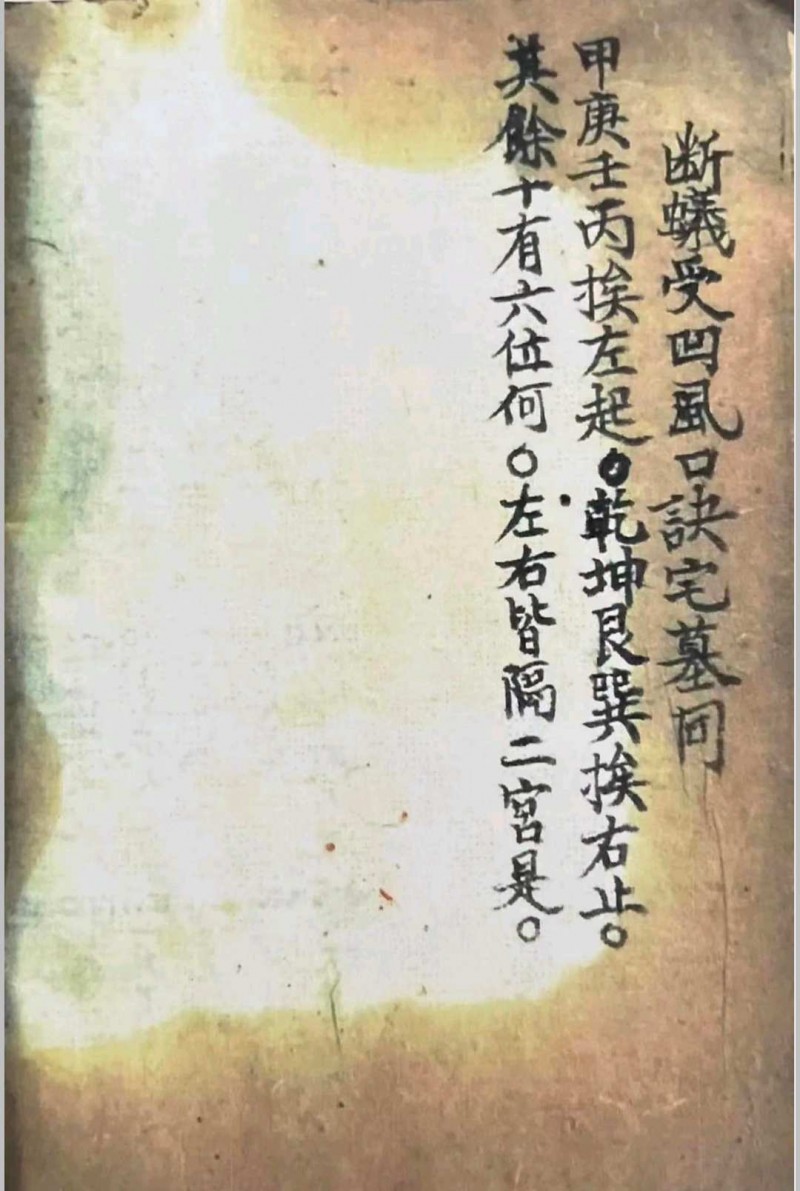 断蟻受凹風口訣宅墓同
甲庚壬丙挨左起。乾坤艮巽挨右止。
其餘十有六位何。左右皆隔二宮是。